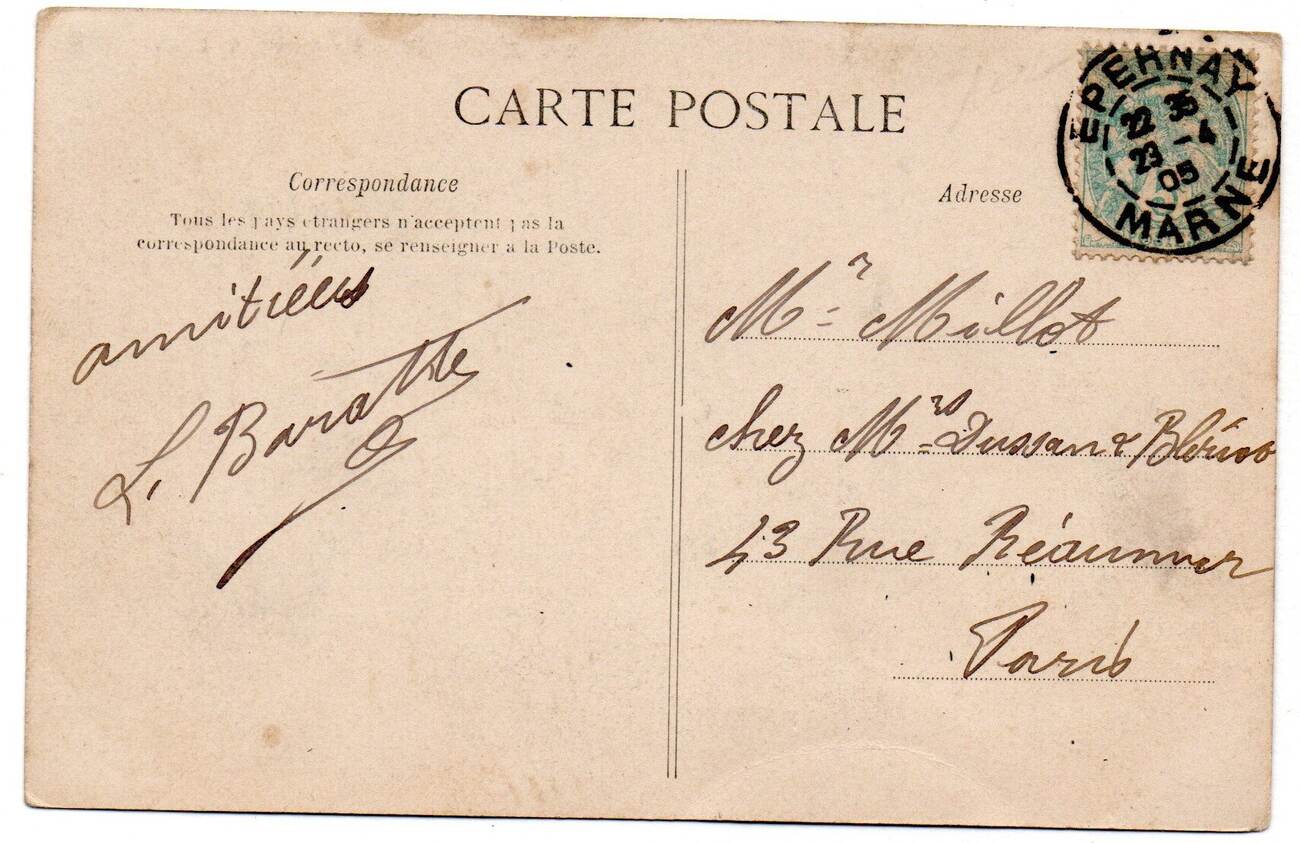 CARTE POSTALE
EPERNAY
22 35
23 - 4
05
MARNE
Correspondance
Tous les pays etrangers n'acceptent pas la
correspondance au recto, se renseigner a la Poste.
amitiées
L. Barathe
Adresse
Mr Millot
chez Mrs Dussan &
43 Rue Réaumur
Paris